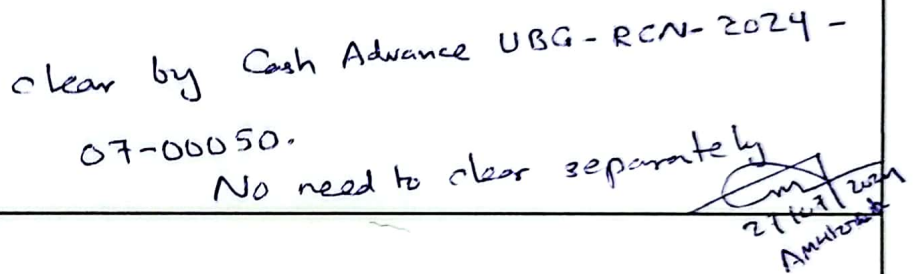 clear by Cash Advance UBG-RCN-2024-
07-00050.
No need to clear separately
27/07/2024